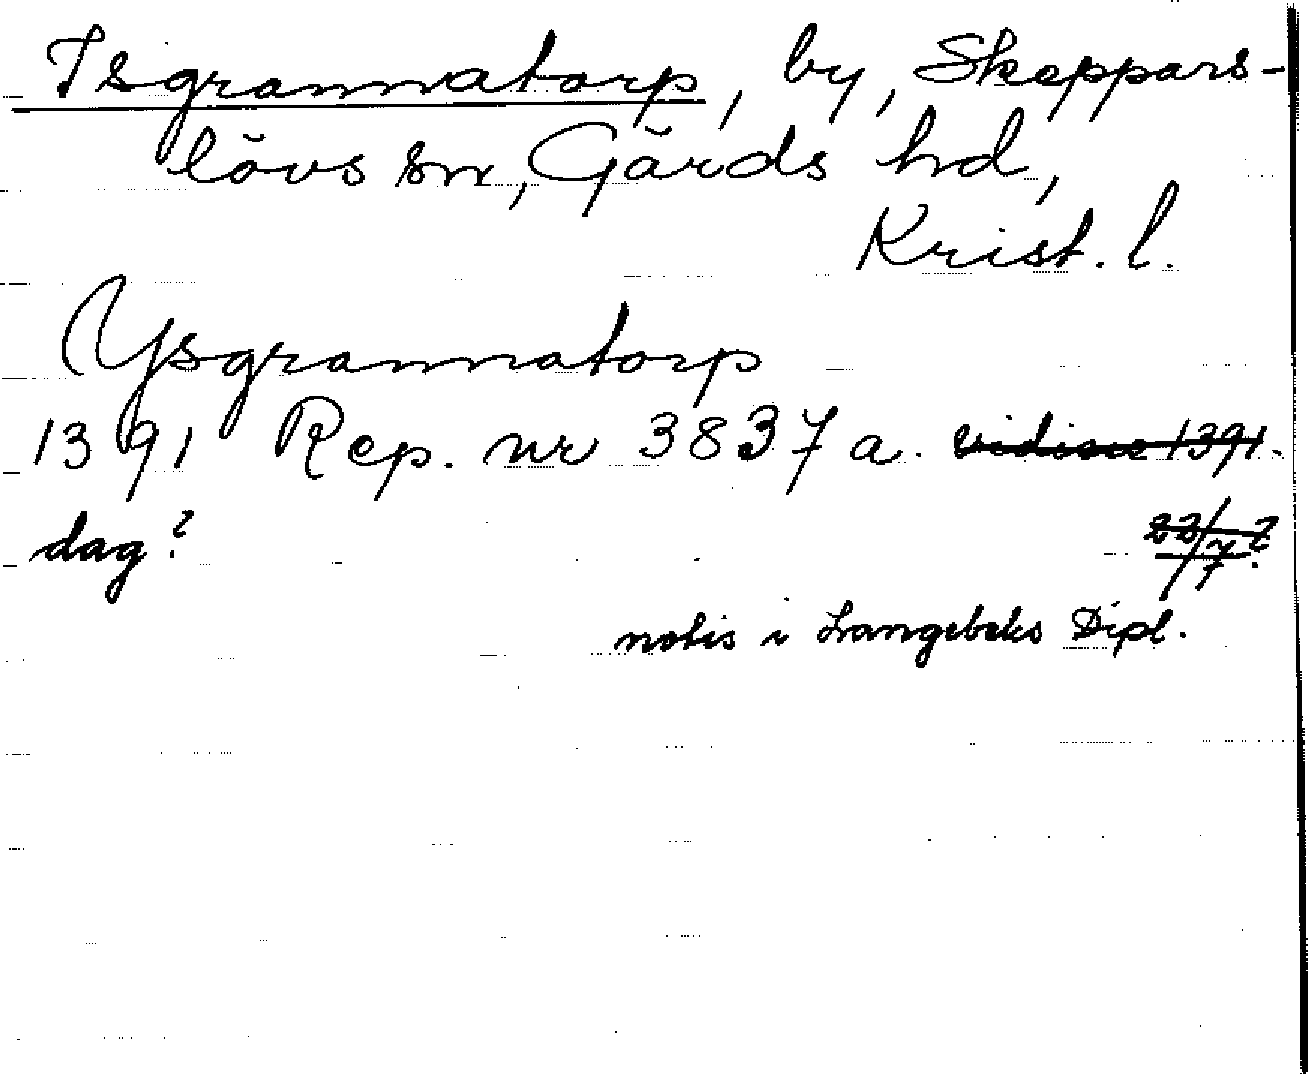 Isgrannatorp, by, Skeppars-
lövs sn, Gärds hd,
Krist. l.
Ysgrannatorp
1391 Rep. nr 3837 a. vidisse 1391.
dag? 22/7?
notis i Langebeks Dipl.